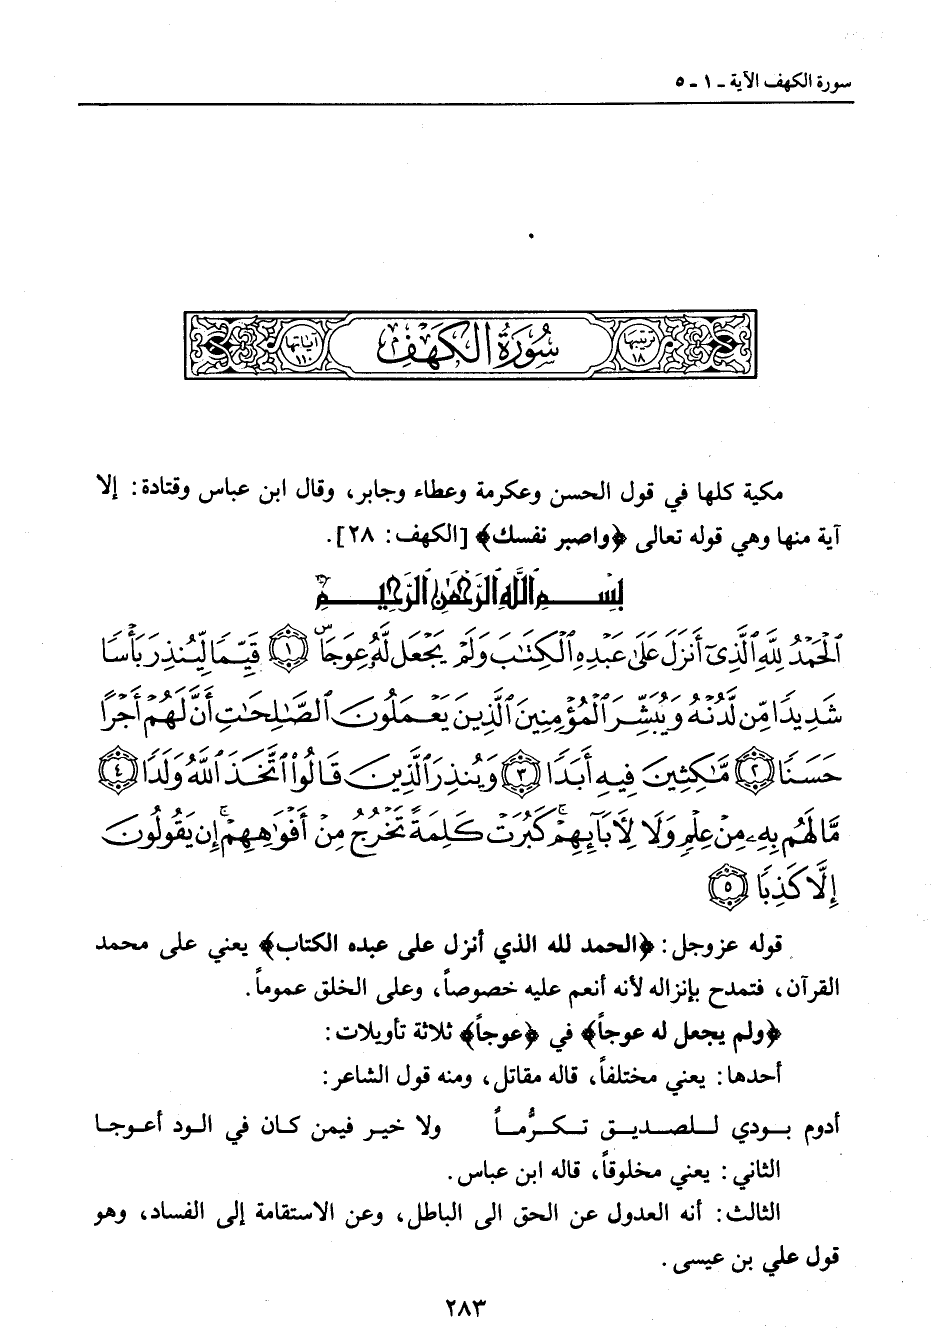 سورة الكهف الآية ـ ١ ـ ٥
ترتيبها ١٨ سُورَةُ الكَهْف آياتها ١١٠
مكية كلها في قول الحسن وعكرمة وعطاء وجابر، وقال ابن عباس وقتادة: إلا
آية منها وهي قوله تعالى ﴿واصبر نفسك﴾ [الكهف: ٢٨].
بِسْمِ اللَّهِ الرَّحْمَٰنِ الرَّحِيمِ
ٱلْحَمْدُ لِلَّهِ ٱلَّذِىٓ أَنزَلَ عَلَىٰ عَبْدِهِ ٱلْكِتَٰبَ وَلَمْ يَجْعَل لَّهُۥ عِوَجَاۜ ١ قَيِّمًا لِّيُنذِرَ بَأْسًا
شَدِيدًا مِّن لَّدُنْهُ وَيُبَشِّرَ ٱلْمُؤْمِنِينَ ٱلَّذِينَ يَعْمَلُونَ ٱلصَّٰلِحَٰتِ أَنَّ لَهُمْ أَجْرًا
حَسَنًا ٢ مَّٰكِثِينَ فِيهِ أَبَدًا ٣ وَيُنذِرَ ٱلَّذِينَ قَالُواْ ٱتَّخَذَ ٱللَّهُ وَلَدًا ٤
مَّا لَهُم بِهِۦ مِنْ عِلْمٍ وَلَا لِأَبَآئِهِمْ ۚ كَبُرَتْ كَلِمَةً تَخْرُجُ مِنْ أَفْوَٰهِهِمْ ۚ إِن يَقُولُونَ
إِلَّا كَذِبًا ٥
قوله عزوجل: ﴿الحمد لله الذي أنزل على عبده الكتاب﴾ يعني على محمد
القرآن، فتمدح بإنزاله لأنه أنعم عليه خصوصاً، وعلى الخلق عموماً.
﴿ولم يجعل له عوجاً﴾ في ﴿عوجاً﴾ ثلاثة تأويلات:
أحدها: يعني مختلفاً، قاله مقاتل، ومنه قول الشاعر:
أدوم بودي للصديق تكرُّماً ولا خير فيمن كان في الود أعوجا
الثاني: يعني مخلوقاً، قاله ابن عباس.
الثالث: أنه العدول عن الحق الى الباطل، وعن الاستقامة إلى الفساد، وهو
قول علي بن عيسى.
٢٨٣